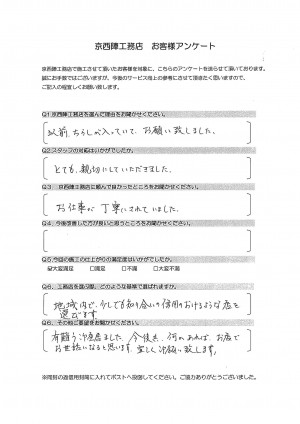 京西陣工務店　お客様アンケート
京西陣工務店で施工させて頂いたお客様を対象に、こちらのアンケートを送らせて頂いております。
誠にお手数ではございますが、今後のサービス向上の参考にさせて頂きたく思いますので、
ご記入の程宜しくお願い致します。
Q1.京西陣工務店を選んだ理由をお聞かせください。
以前ちらしが入っていて、お願い致しました。
Q2.スタッフの対応はいかがでしたか。
とても、親切にしていただきました。
Q3.　京西陣工務店に頼んで良かったところをお聞かせください。
お仕事が丁寧にされていました。
Q4.今後改善した方が良いと思うところをお聞かせください。
Q5.今回の施工の仕上がりの満足度はいかがでしたか。
☑大変満足　□満足　□不満　□大変不満
Q6.工務店を選ぶ際、どのような基準で選ばれますか。
地域内で、少しでも知り合いの信用おけるような店を
選びます
Q6.その他ご要望をお聞かせください。
有難う御座居ました。今後共、何かあれば、お店で
お世話になると思います。宜しく御願い致します。
※同封の返信用封筒に入れてポストへ投函してください。ご協力ありがとうございました。